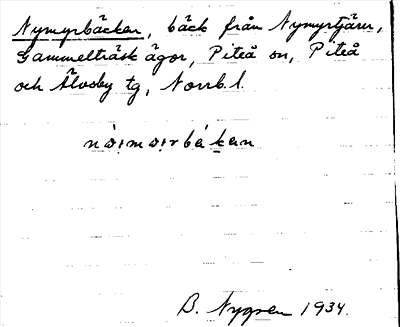 Nymyrbäcken, bäck från Nymyrtjärn,
Gammelträsk ägor, Piteå sn, Piteå
och Älvsby tg, Norrb. l.
B. Nygren 1934.